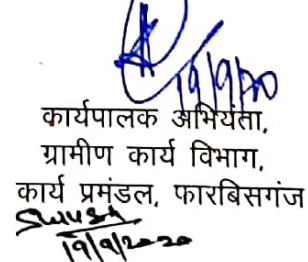 19/9/20
कार्यपालक अभियंता,
ग्रामीण कार्य विभाग,
कार्य प्रमंडल, फारबिसगंज
19/9/2020